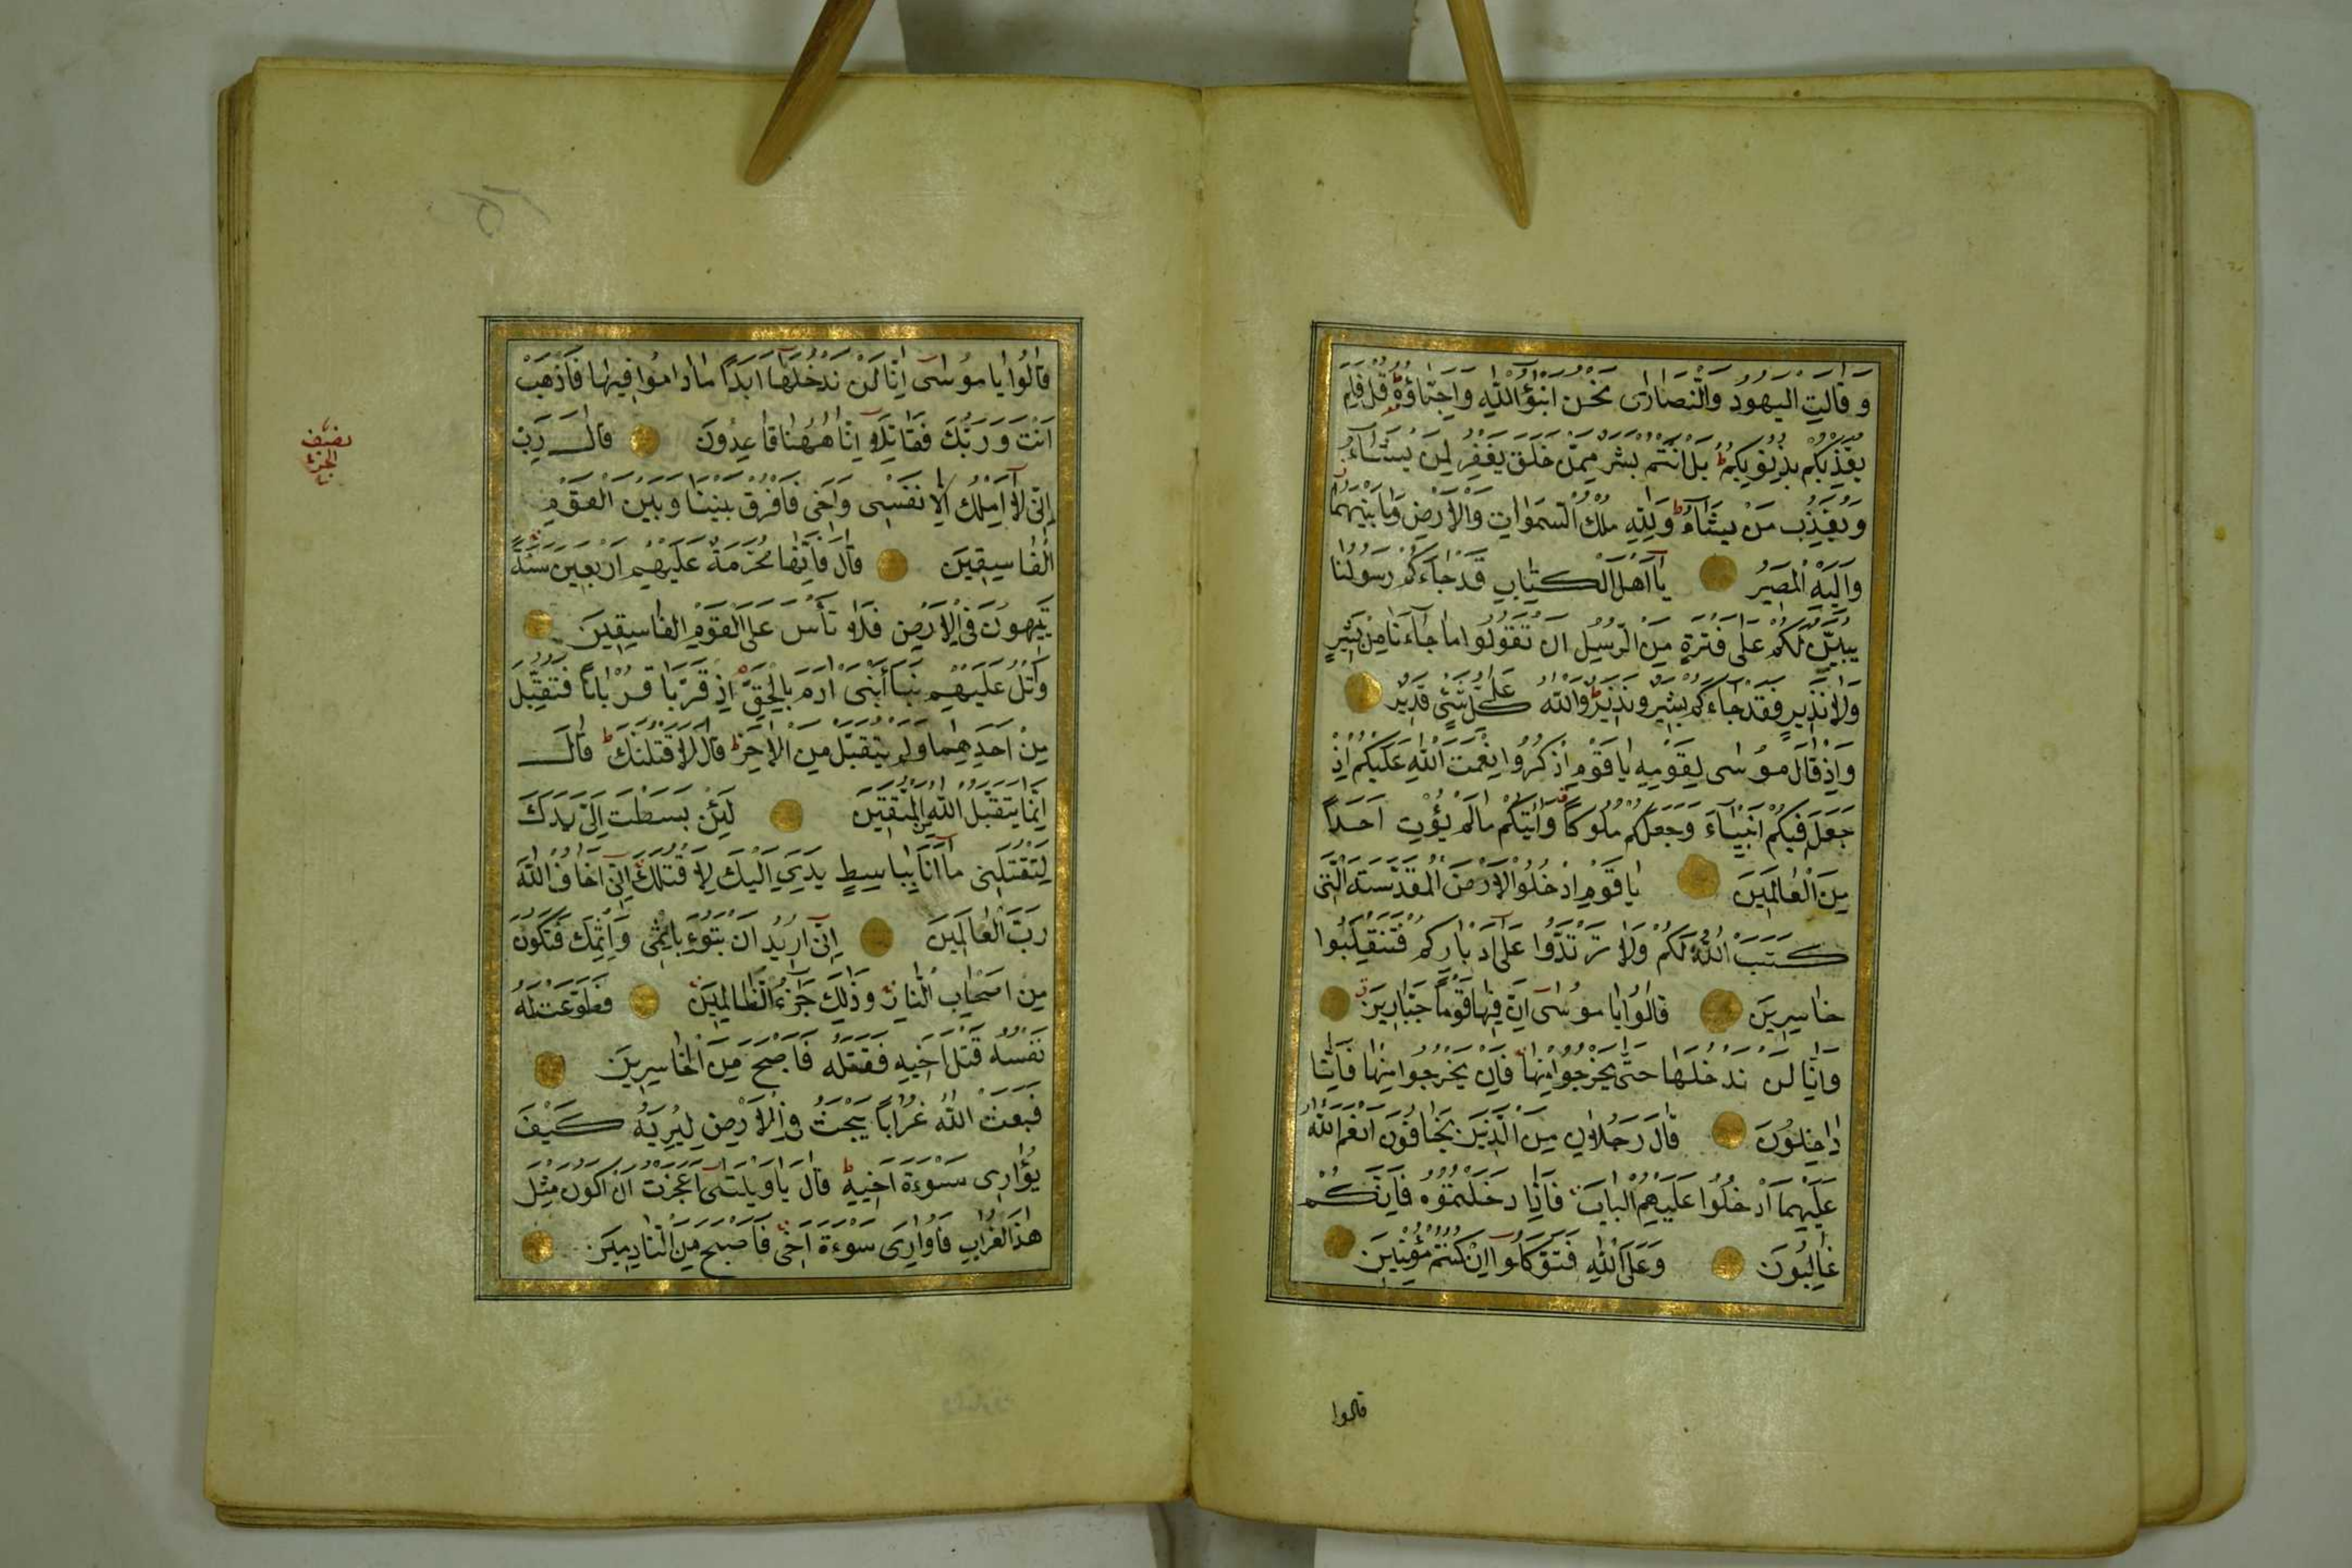 وَقَالَتِ الْيَهُودُ وَالنَّصَارٰى نَحْنُ ابْنٰؤُا اللّٰهِ وَاَحِبَّاؤُهُ قُلْ فَلِمَ
يُعَذِّبُكُمْ بِذُنُوبِكُمْ بَلْ اَنْتُمْ بَشَرٌ مِمَّنْ خَلَقَ يَغْفِرُ لِمَنْ يَشَاءُ
وَيُعَذِّبُ مَنْ يَشَاءُ وَلِلّٰهِ مُلْكُ السَّمٰوَاتِ وَالْاَرْضِ وَمَا بَيْنَهُمَا
وَاِلَيْهِ الْمَصِيرُ يَا اَهْلَ الْكِتَابِ قَدْ جَاءَكُمْ رَسُولُنَا
يُبَيِّنُ لَكُمْ عَلٰى فَتْرَةٍ مِنَ الرُّسُلِ اَنْ تَقُولُوا مَا جَاءَنَا مِنْ بَشِيرٍ
وَلَا نَذِيرٍ فَقَدْ جَاءَكُمْ بَشِيرٌ وَنَذِيرٌ وَاللّٰهُ عَلٰى كُلِّ شَيْءٍ قَدِيرٌ
وَاِذْ قَالَ مُوسٰى لِقَوْمِهِ يَا قَوْمِ اذْكُرُوا نِعْمَتَ اللّٰهِ عَلَيْكُمْ اِذْ
جَعَلَ فِيكُمْ اَنْبِيَاءَ وَجَعَلَكُمْ مُلُوكًا وَاٰتٰيكُمْ مَا لَمْ يُؤْتِ اَحَدًا
مِنَ الْعَالَمِينَ يَا قَوْمِ ادْخُلُوا الْاَرْضَ الْمُقَدَّسَةَ الَّتِى
كَتَبَ اللّٰهُ لَكُمْ وَلَا تَرْتَدُّوا عَلٰى اَدْبَارِكُمْ فَتَنْقَلِبُوا
خَاسِرِينَ قَالُوا يَا مُوسٰى اِنَّ فِيهَا قَوْمًا جَبَّارِينَ
وَاِنَّا لَنْ نَدْخُلَهَا حَتّٰى يَخْرُجُوا مِنْهَا فَاِنْ يَخْرُجُوا مِنْهَا فَاِنَّا
دَاخِلُونَ قَالَ رَجُلَانِ مِنَ الَّذِينَ يَخَافُونَ اَنْعَمَ اللّٰهُ
عَلَيْهِمَا ادْخُلُوا عَلَيْهِمُ الْبَابَ فَاِذَا دَخَلْتُمُوهُ فَاِنَّكُمْ
غَالِبُونَ وَعَلَى اللّٰهِ فَتَوَكَّلُوا اِنْ كُنْتُمْ مُؤْمِنِينَ
قالوا
قَالُوا يَا مُوسٰى اِنَّا لَنْ نَدْخُلَهَا اَبَدًا مَا دَامُوا فِيهَا فَاذْهَبْ
اَنْتَ وَرَبُّكَ فَقَاتِلَا اِنَّا هٰهُنَا قَاعِدُونَ قَالَ رَبِّ
اِنِّى لَا اَمْلِكُ اِلَّا نَفْسِى وَاَخِى فَافْرُقْ بَيْنَنَا وَبَيْنَ الْقَوْمِ
الْفَاسِقِينَ قَالَ فَاِنَّهَا مُحَرَّمَةٌ عَلَيْهِمْ اَرْبَعِينَ سَنَةً
يَتِيهُونَ فِى الْاَرْضِ فَلَا تَأْسَ عَلَى الْقَوْمِ الْفَاسِقِينَ
وَاتْلُ عَلَيْهِمْ نَبَأَ ابْنَىْ اٰدَمَ بِالْحَقِّ اِذْ قَرَّبَا قُرْبَانًا فَتُقُبِّلَ
مِنْ اَحَدِهِمَا وَلَمْ يُتَقَبَّلْ مِنَ الْاٰخَرِ قَالَ لَاَقْتُلَنَّكَ قَالَ
اِنَّمَا يَتَقَبَّلُ اللّٰهُ مِنَ الْمُتَّقِينَ لَئِنْ بَسَطْتَ اِلَىَّ يَدَكَ
لِتَقْتُلَنِى مَا اَنَا بِبَاسِطٍ يَدِىَ اِلَيْكَ لِاَقْتُلَكَ اِنِّى اَخَافُ اللّٰهَ
رَبَّ الْعَالَمِينَ اِنِّى اُرِيدُ اَنْ تَبُوءَ بِاِثْمِى وَاِثْمِكَ فَتَكُونَ
مِنْ اَصْحَابِ النَّارِ وَذٰلِكَ جَزٰؤُا الظَّالِمِينَ فَطَوَّعَتْ لَهُ
نَفْسُهُ قَتْلَ اَخِيهِ فَقَتَلَهُ فَاَصْبَحَ مِنَ الْخَاسِرِينَ
فَبَعَثَ اللّٰهُ غُرَابًا يَبْحَثُ فِى الْاَرْضِ لِيُرِيَهُ كَيْفَ
يُوَارِى سَوْءَةَ اَخِيهِ قَالَ يَا وَيْلَتٰى اَعَجَزْتُ اَنْ اَكُونَ مِثْلَ
هٰذَا الْغُرَابِ فَاُوَارِىَ سَوْءَةَ اَخِى فَاَصْبَحَ مِنَ النَّادِمِينَ
نصف
الجزء